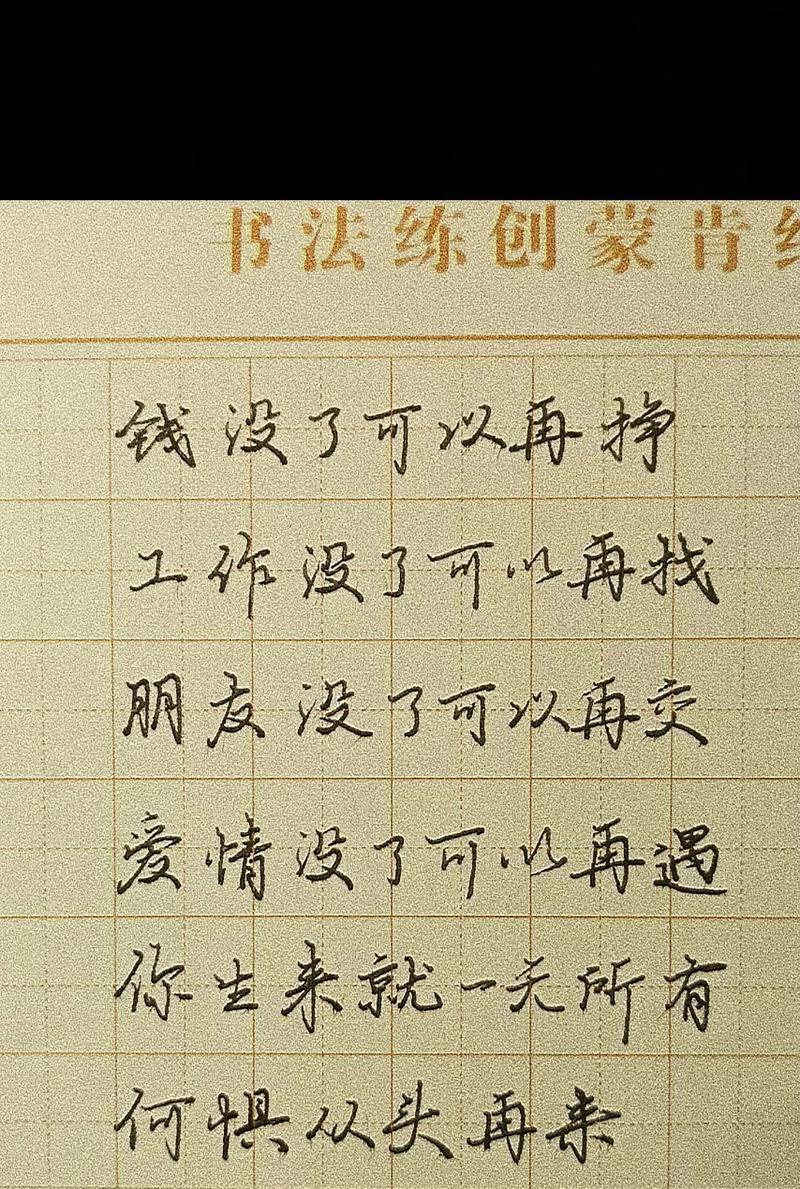 书法练创蒙肯纸
钱没了可以再挣
工作没了可以再找
朋友没了可以再交
爱情没了可以再遇
你生来就一无所有
何惧从头再来